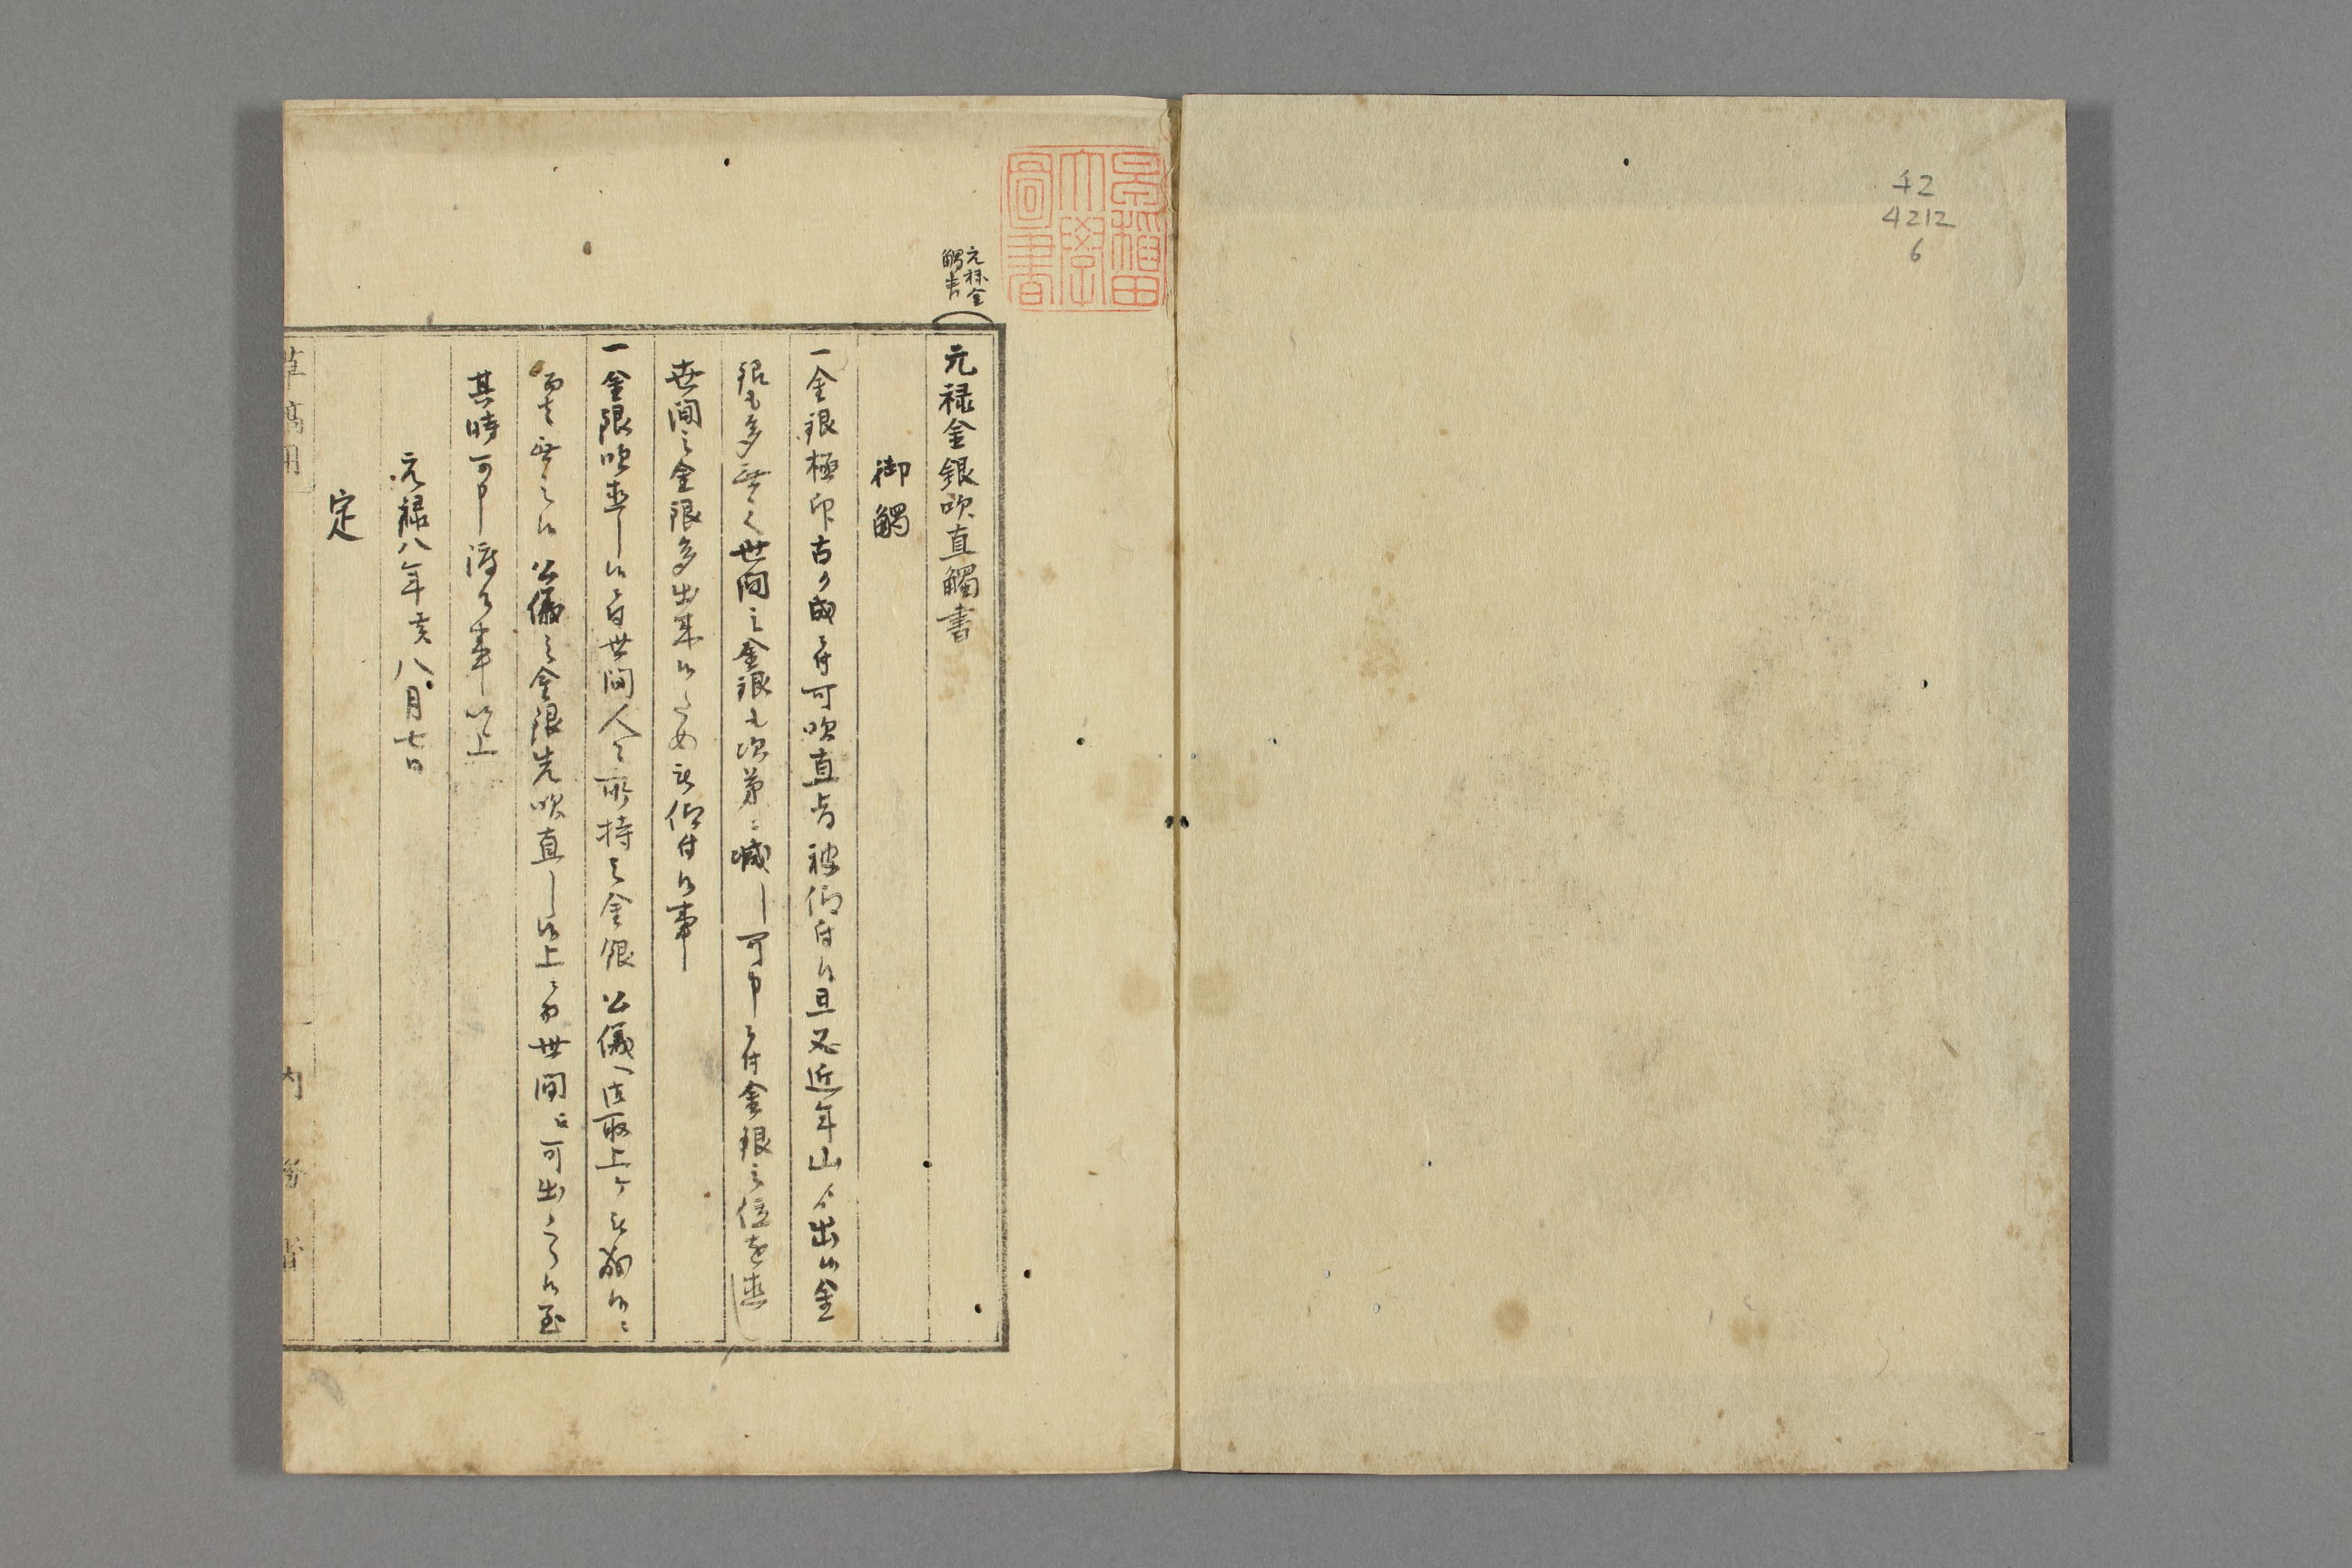 42
4212
6
早稲田
大學
圖書
元禄金
觸書
元禄金銀吹直觸書
御觸
一金銀極印古ク成候ニ付可吹直旨被仰付候且又近年山ゟ出候金
銀も多無之世間之金銀も次第ニ減し可申ニ付金銀之位を直し
世間之金銀多出来候ため被仰付候事
一金銀吹直し候ニ付世間人々所持之金銀 公儀へ御取上ケ被成候ニ
而者無之候 公儀之金銀先吹直し候上ニ而世間江可出之候至
其時可申渡候事以上
元禄八年亥八月七日
定
草稿用